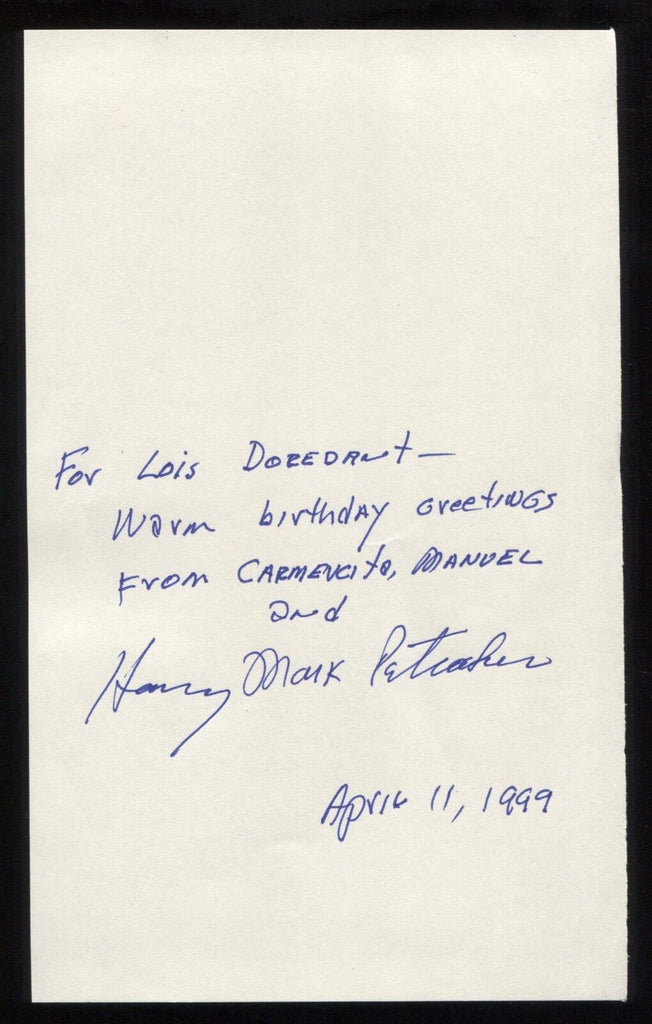 For Lois DOREDANt —
Warm birthday greetings
From CARMENCita, MANUEL
and
Harry Mark Petrakis
April 11, 1999